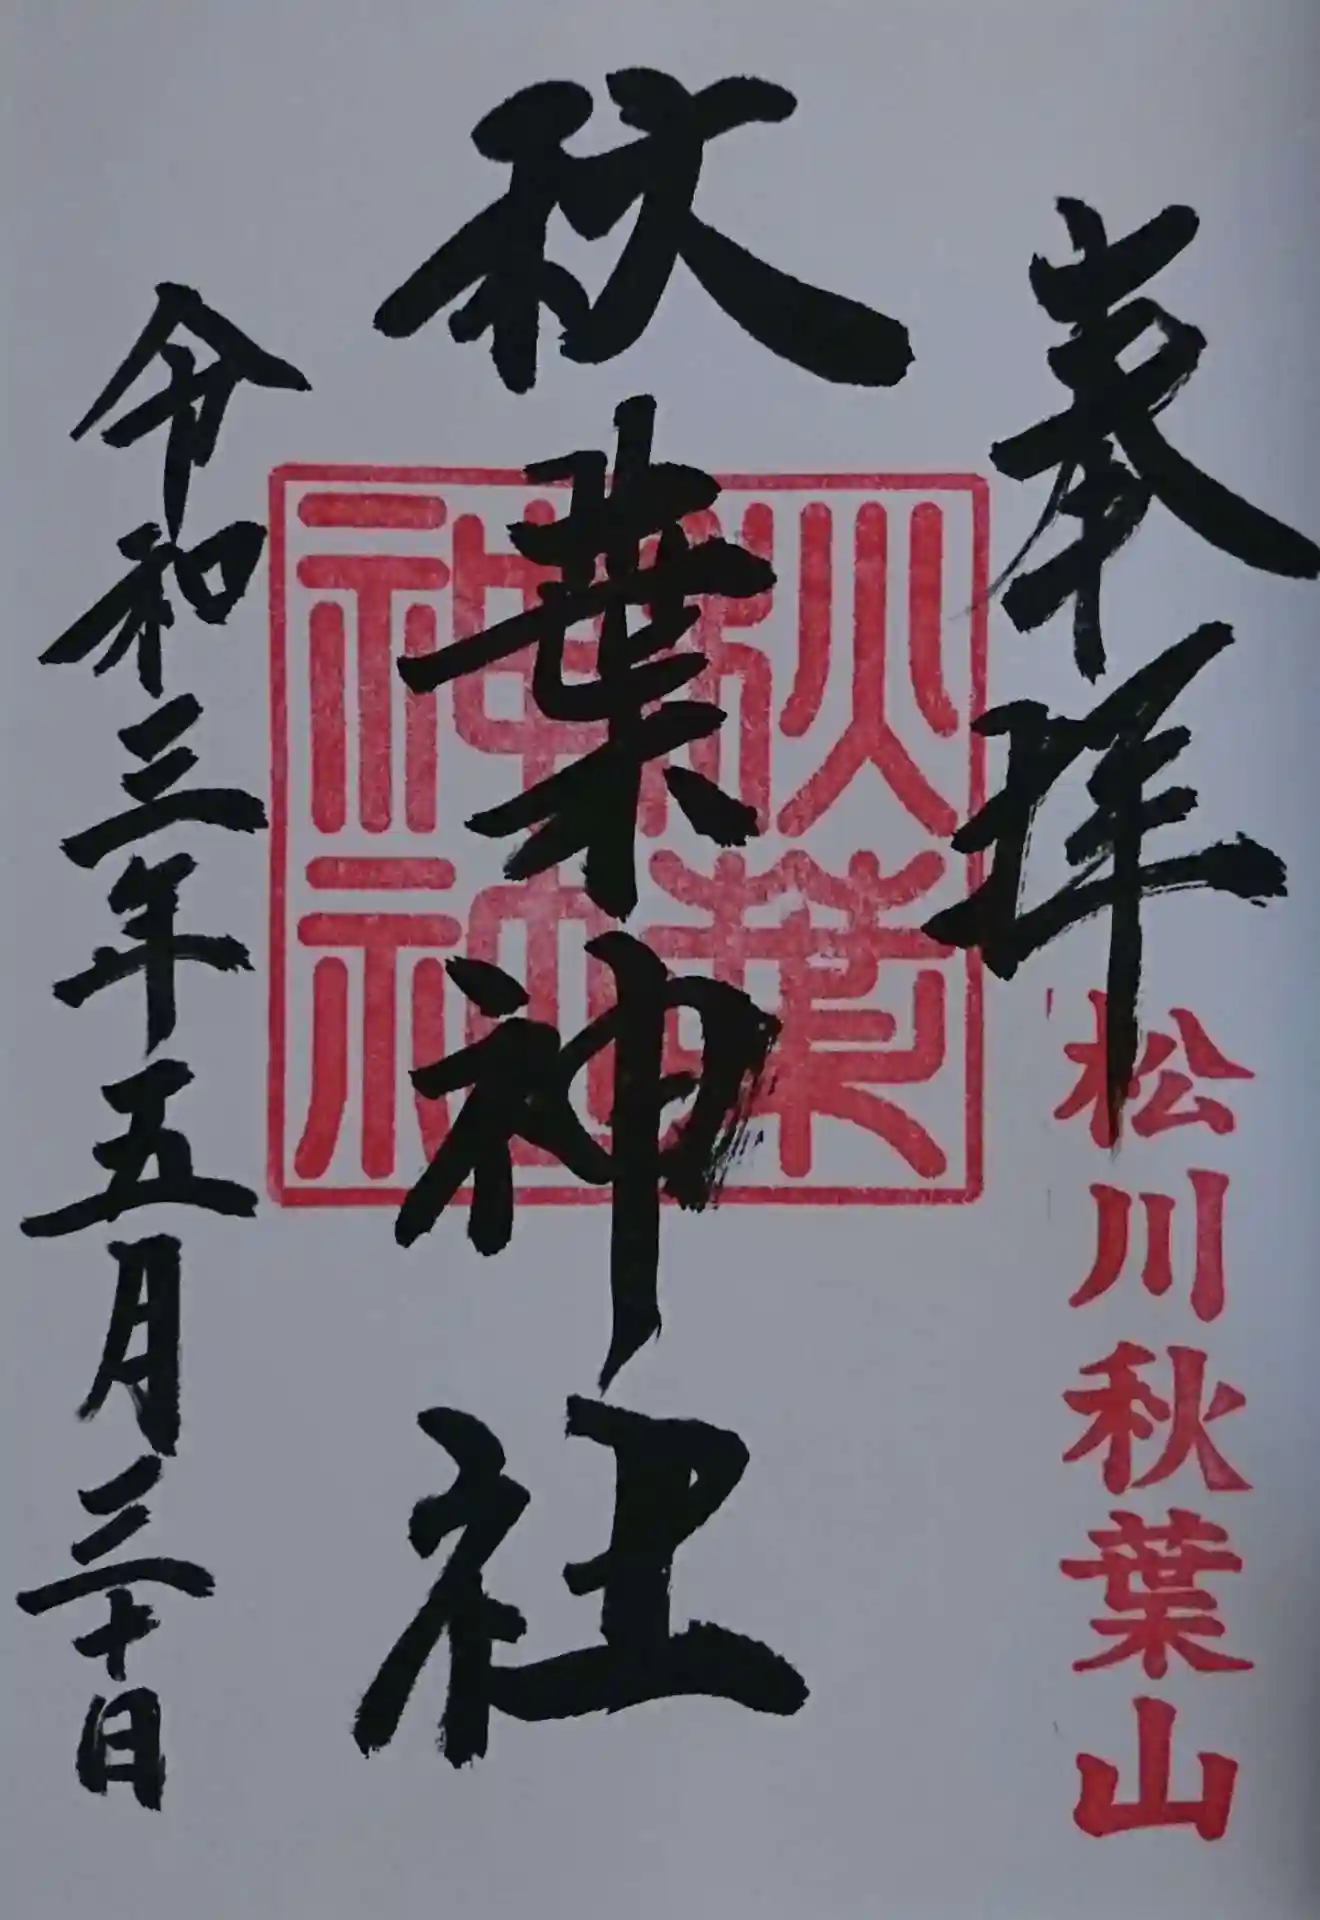 奉拝
松川秋葉山
秋葉神社
秋葉
神社
令和三年五月三十日